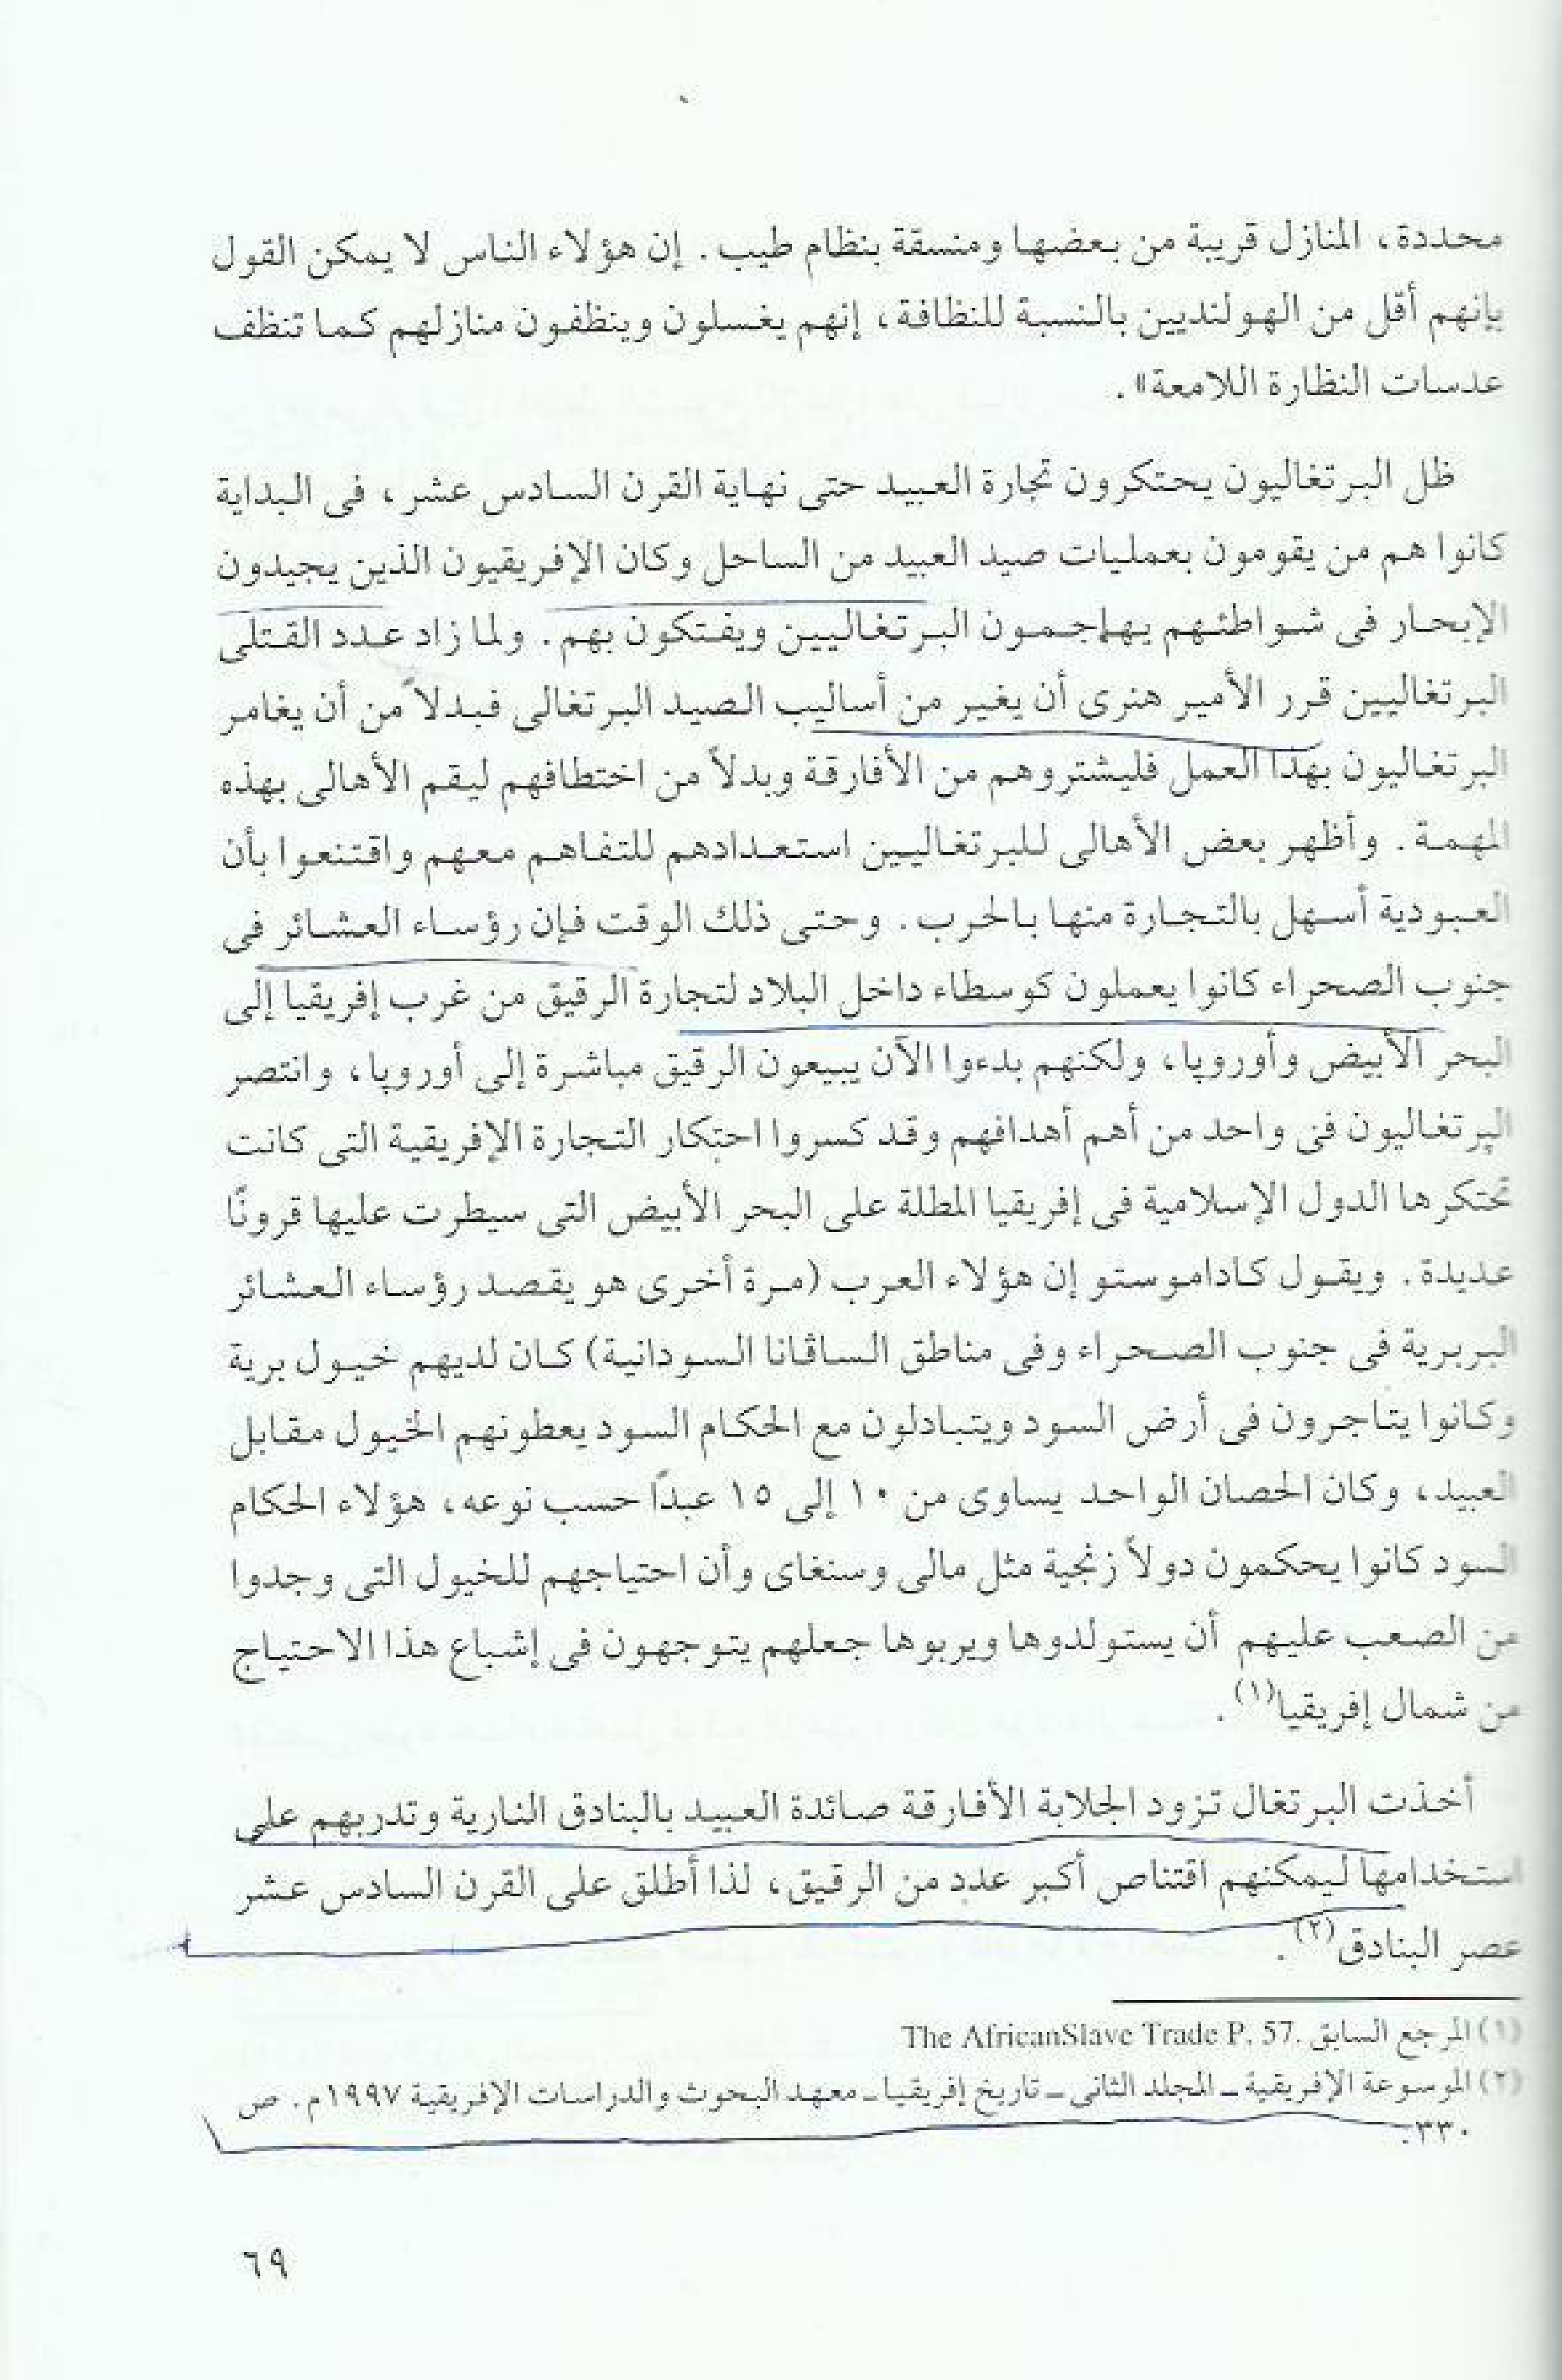 محددة، المنازل قريبة من بعضها ومنسقة بنظام طيب. إن هؤلاء الناس لا يمكن القول
بإنهم أقل من الهولنديين بالنسبة للنظافة، إنهم يغسلون وينظفون منازلهم كما تنظف
عدسات النظارة اللامعة».
ظل البرتغاليون يحتكرون تجارة العبيد حتى نهاية القرن السادس عشر، فى البداية
كانوا هم من يقومون بعمليات صيد العبيد من الساحل وكان الإفريقيون الذين يجيدون
الإبحار فى شواطئهم يهاجمون البرتغاليين ويفتكون بهم. ولما زاد عدد القتلى
البرتغاليين قرر الأمير هنرى أن يغير من أساليب الصيد البرتغالى فبدلاً من أن يغامر
البرتغاليون بهذا العمل فليشتروهم من الأفارقة وبدلاً من اختطافهم ليقم الأهالى بهذه
المهمة. وأظهر بعض الأهالى للبرتغاليين استعدادهم للتفاهم معهم واقتنعوا بأن
العبودية أسهل بالتجارة منها بالحرب. وحتى ذلك الوقت فإن رؤساء العشائر فى
جنوب الصحراء كانوا يعملون كوسطاء داخل البلاد لتجارة الرقيق من غرب إفريقيا إلى
البحر الأبيض وأوروبا، ولكنهم بدءوا الآن يبيعون الرقيق مباشرة إلى أوروبا، وانتصر
البرتغاليون فى واحد من أهم أهدافهم وقد كسروا احتكار التجارة الإفريقية التى كانت
تحتكرها الدول الإسلامية فى إفريقيا المطلة على البحر الأبيض التى سيطرت عليها قرونًا
عديدة. ويقول كاداموستو إن هؤلاء العرب (مرة أخرى هو يقصد رؤساء العشائر
البربرية فى جنوب الصحراء وفى مناطق الساڤانا السودانية) كان لديهم خيول برية
وكانوا يتاجرون فى أرض السود ويتبادلون مع الحكام السود يعطونهم الخيول مقابل
العبيد، وكان الحصان الواحد يساوى من ١٠ إلى ١٥ عبدًا حسب نوعه، هؤلاء الحكام
السود كانوا يحكمون دولاً زنجية مثل مالى وسنغاى وأن احتياجهم للخيول التى وجدوا
من الصعب عليهم أن يستولدوها ويربوها جعلهم يتوجهون فى إشباع هذا الاحتياج
من شمال إفريقيا(١).
أخذت البرتغال تزود الجلابة الأفارقة صائدة العبيد بالبنادق النارية وتدربهم على
استخدامها ليمكنهم اقتناص أكبر عدد من الرقيق، لذا أطلق على القرن السادس عشر
عصر البنادق(٢).
(١) المرجع السابق .The AfricanSlave Trade P. 57
(٢) الموسوعة الإفريقية ـ المجلد الثانى ـ تاريخ إفريقيا ـ معهد البحوث والدراسات الإفريقية ١٩٩٧م. ص
٣٣٠.
٦٩